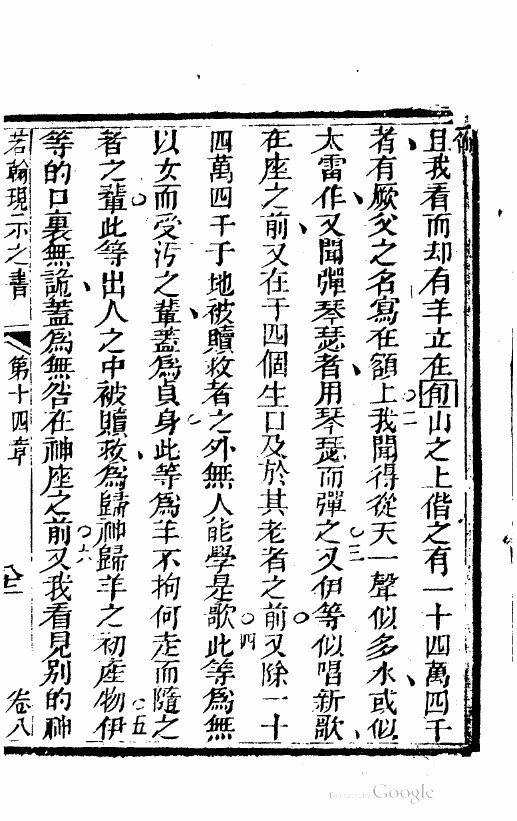 且我看而却有羊立在旬山之上偕之有一十四萬四千
者有厥父之名寫在額上○二我聞得從天一聲似多水或似
太雷作又聞彈琴瑟者用琴瑟而彈之○三又伊等似唱新歌
在座之前又在于四個生口及於其老者之前○四又除一十
四萬四千于地被贖救者之外無人能學是歌此等為無
以女而受污之輩蓋為貞身此等為羊不拘何走而隨之○五
者之輩此等出人之中被贖救為歸神歸羊之初產物伊
等的口裏無詭蓋為無咎在神座之前○六又我看見別的神
若翰現示之書 第十四章 卷八
Digitized by Google